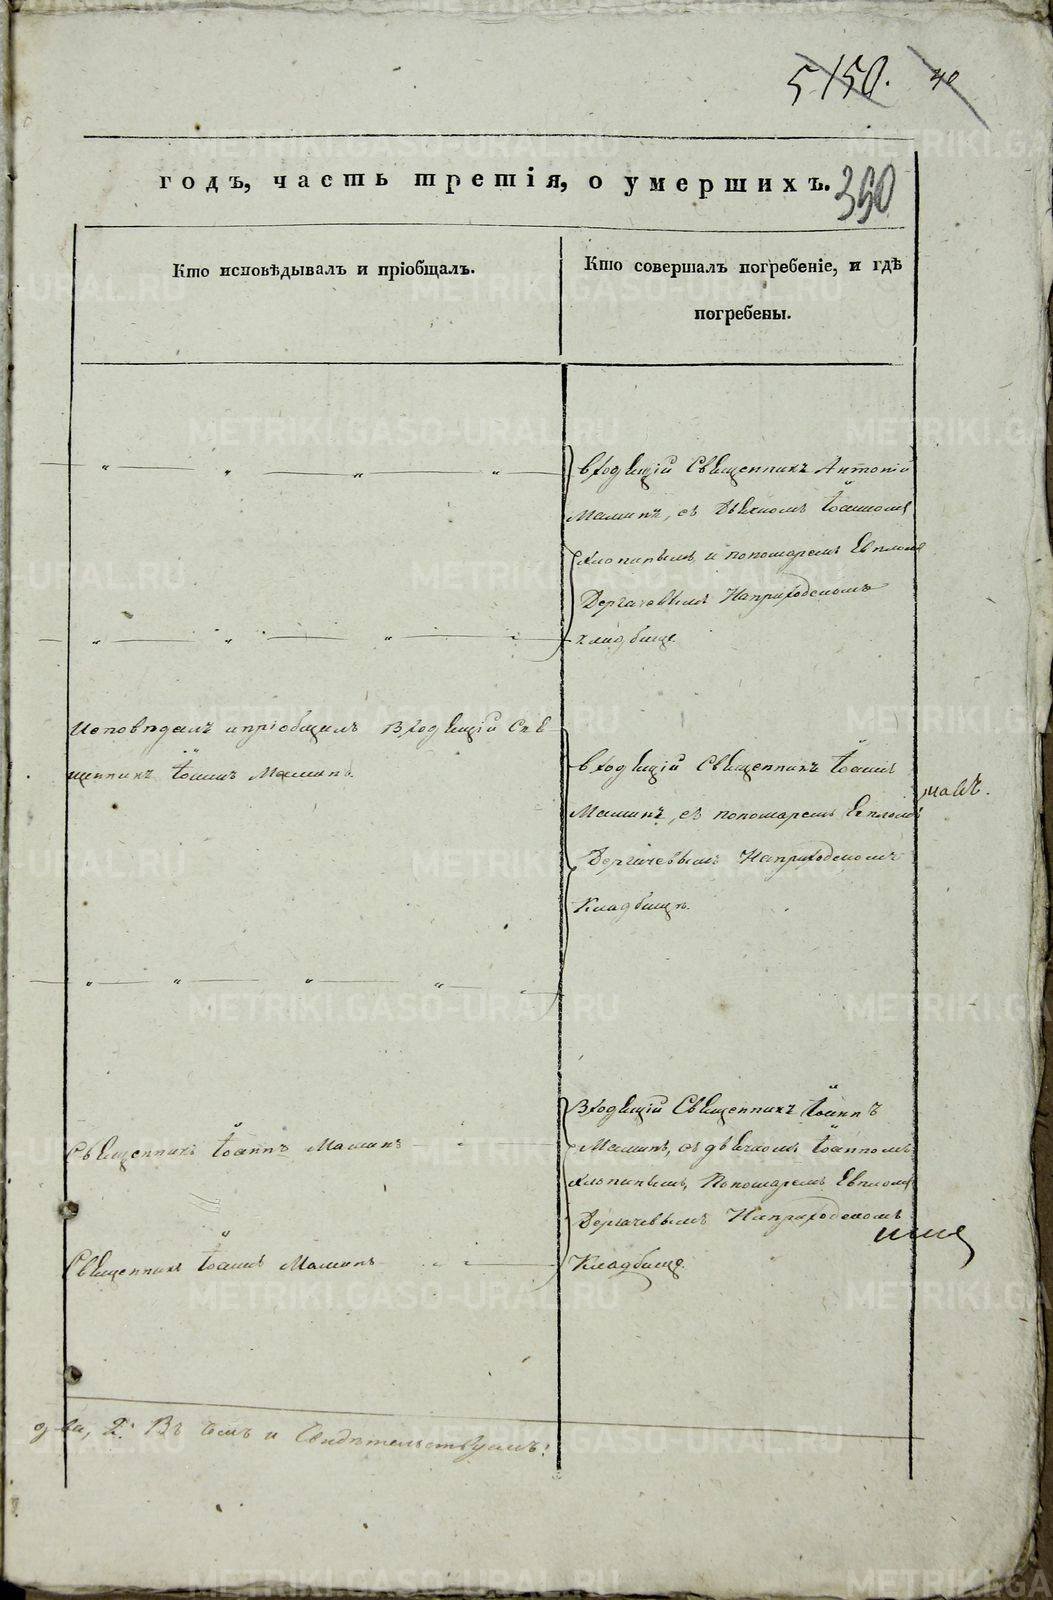 5150. 40
годъ, часть третія, о умершихъ. 390
Кто исповѣдывалъ и пріобщалъ.
Кто совершалъ погребеніе, и гдѣ
погребены.
входящій Священникъ Антоній
Маминъ, съ Дьякомъ Іоанномъ
Хлопинымъ и пономаремъ Евпломъ
Дергачевымъ Наприходскомъ
кладбище
Исповѣдалъ и пріобщалъ Входящій Свя
щенникъ Іоаннъ Маминъ.
входящій Священникъ Іоаннъ
Маминъ, съ пономаремъ Евпломъ
Дергачевымъ Наприходскомъ
Кладбищѣ.
Входящій Священникъ Іоаннъ
Маминъ, съ дьячкомъ Іоанномъ
Хлопинымъ, Пономаремъ Евпломъ
Дергачевымъ Наприходскомъ
Кладбище.
Священникъ Іоаннъ Маминъ
Священникъ Іоаннъ Маминъ
два, 2. Въ чемъ и Свидѣтельствуемъ:
METRIKI.GASO-URAL.RU